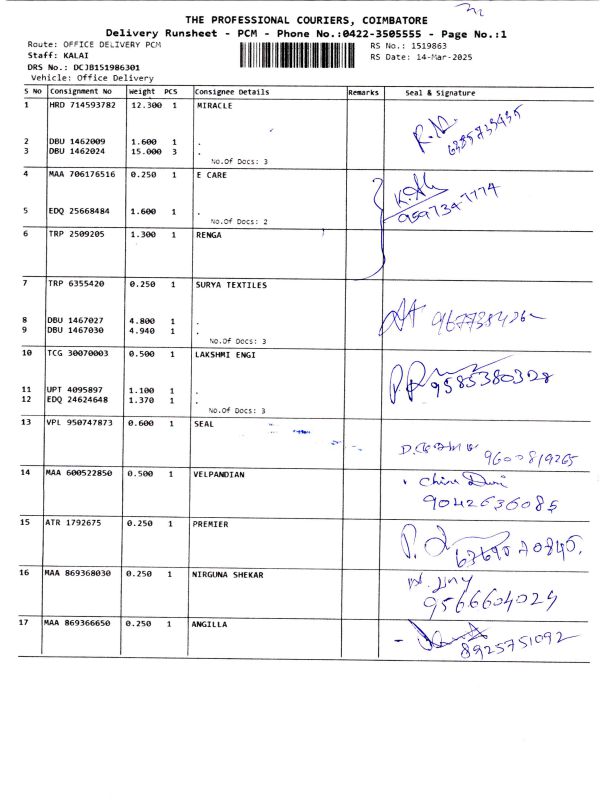 THE PROFESSIONAL COURIERS, COIMBATORE
Delivery Runsheet - PCM - Phone No.:0422-3505555 - Page No.:1
Route: OFFICE DELIVERY PCM
RS No.: 1519863
Staff: KALAI
RS Date: 14-Mar-2025
DRS No.: DCJB151986301
Vehicle: Office Delivery
S No Consignment No Weight PCS Consignee Details Remarks Seal & Signature
1 HRD 714593782 12.300 1 MIRACLE
6385735435
2 DBU 1462009 1.600 1 .
3 DBU 1462024 15.000 3 .
No.Of Docs: 3
4 MAA 706176516 0.250 1 E CARE
9597347774
5 EDQ 25668484 1.600 1 .
No.Of Docs: 2
6 TRP 2509205 1.300 1 RENGA
7 TRP 6355420 0.250 1 SURYA TEXTILES
8 DBU 1467027 4.800 1 .
9 DBU 1467030 4.940 1 .
No.Of Docs: 3
10 TCG 30070003 0.500 1 LAKSHMI ENGI
9585380328
11 UPT 4095897 1.100 1 .
12 EDQ 24624648 1.370 1 .
No.Of Docs: 3
13 VPL 950747873 0.600 1 SEAL
9600819265
14 MAA 600522850 0.500 1 VELPANDIAN
9042636085
15 ATR 1792675 0.250 1 PREMIER
16 MAA 869368030 0.250 1 NIRGUNA SHEKAR
9566604024
17 MAA 869366650 0.250 1 ANGILLA
8925751092